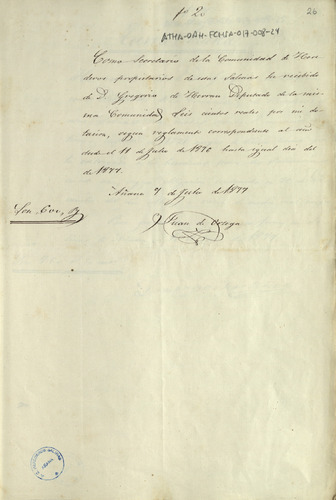 pº 2.
26
ATHA-DAH-FCHSA-017-008-24
Como Secretario de la Comunidad de Here
deros propietarios de estas Salinas he recibido
de D. Gregorio de Herran Diputado de la mis
ma Comunidad, Seis cientos reales por mi do
tacion, segun reglamento correspondiente al año
desde el 11 de Julio de 1876 hasta igual dia del
de 1877.
Añana 7 de Julio de 1877
Son
Juan de Ortega